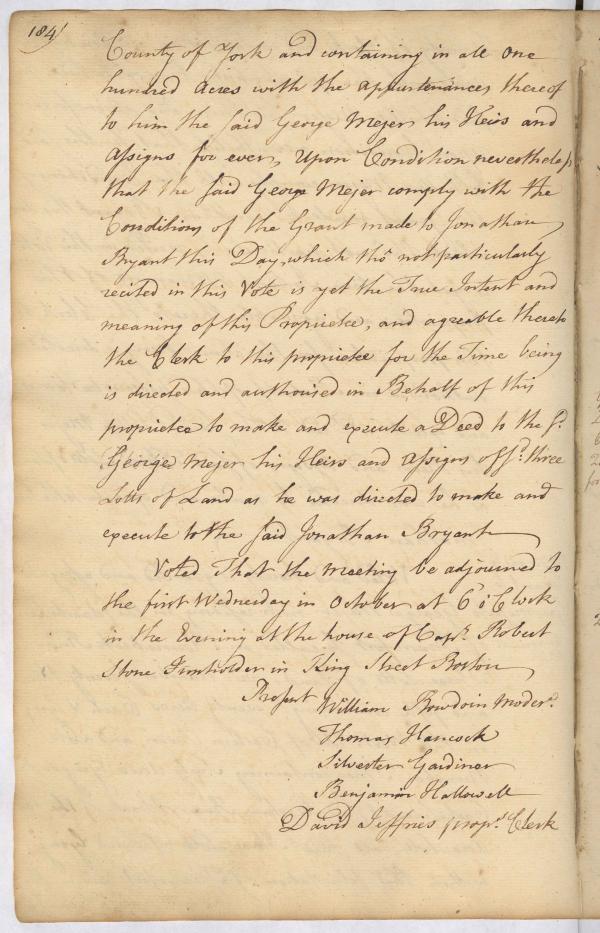 184
County of York and containing in all One
hundred Acres with the appurtenances thereof
to him the said George Mejer his Heirs and
Assigns for ever, Upon Condition nevertheless
that the said George Mejer comply with the
Conditions of the Grant made to Jonathan
Bryant this Day, which tho' not particularly
recited in this Vote is yet the True Intent and
meaning of this Propriettee, and agreable thereto
the Clerk to this propriettee for the Time being
is directed and authorised in Behalf of this
propriettee to make and execute a Deed to the sd.
George Mejer his Heirs and Assigns of sd. three
Lotts of Land as he was directed to make and
execute to the said Jonathan Bryant
Voted That the meeting be adjourned to
the first Wednesday in October at 6 o'Clock
in the Evening at the house of Capt. Robert
Stone Innholder in King Street Boston
Present
William Bowdoin Moder.
Thomas Hancock
Silvester Gardiner
Benjamin Hallowell
David Jeffries props. Clerk